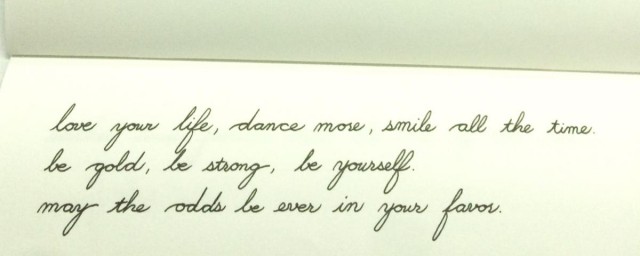 love your life, dance more, smile all the time.
be gold, be strong, be yourself.
may the odds be ever in your favor.